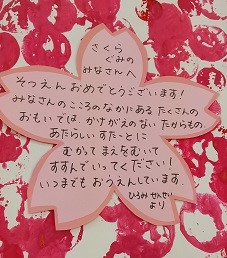 さくら
ぐみの
みなさんへ
そつえんおめでとうございます!
みなさんのこころのなかにあるたくさんの
おもいでは、かけがえのないたからもの
あたらしいすたーとに
むかってまえをむいて
すすんでいってください!
いつまでもおうえんしています。
ひろみせんせい
より